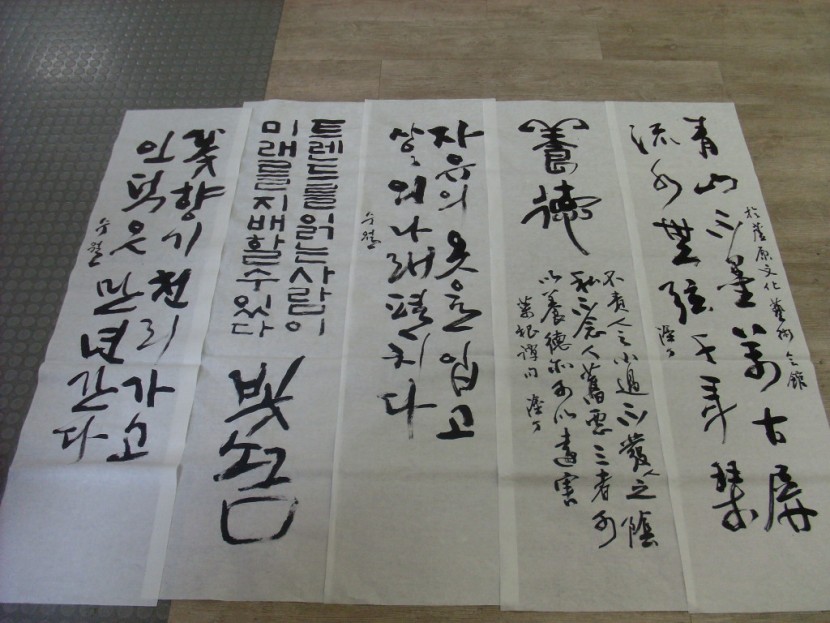 青山不墨萬古屏
流水無弦千年琴
於蘆原文化藝術会館
養德
不責人之小過不發人之陰
私不念人舊惡三者可
以養德亦可以遠害
菜根譚句
자유의 옷을 입고
상상의 나래 펼치다
트렌드를 읽는 사람이
미래를 지배할 수 있다
빛 소금
꽃향기 천리 가고
인덕은 만년 간다